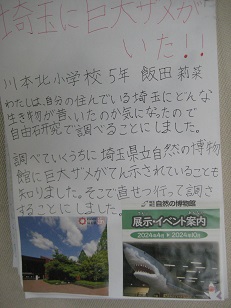 埼玉に巨大サメが
いた!!
川本北小学校5年 飯田 莉菜
わたしは、自分の住んでいる埼玉にどんな
生き物が昔、いたのか気になったので
自由研究で調べることにしました。
調べていくうちに埼玉県立自然の博物
館に巨大ザメがてん示されていることも
知りました。そこで直せつ行って調さ
することにしました。
自然の博物館
展示・イベント案内
2024年4月▶2024年10月